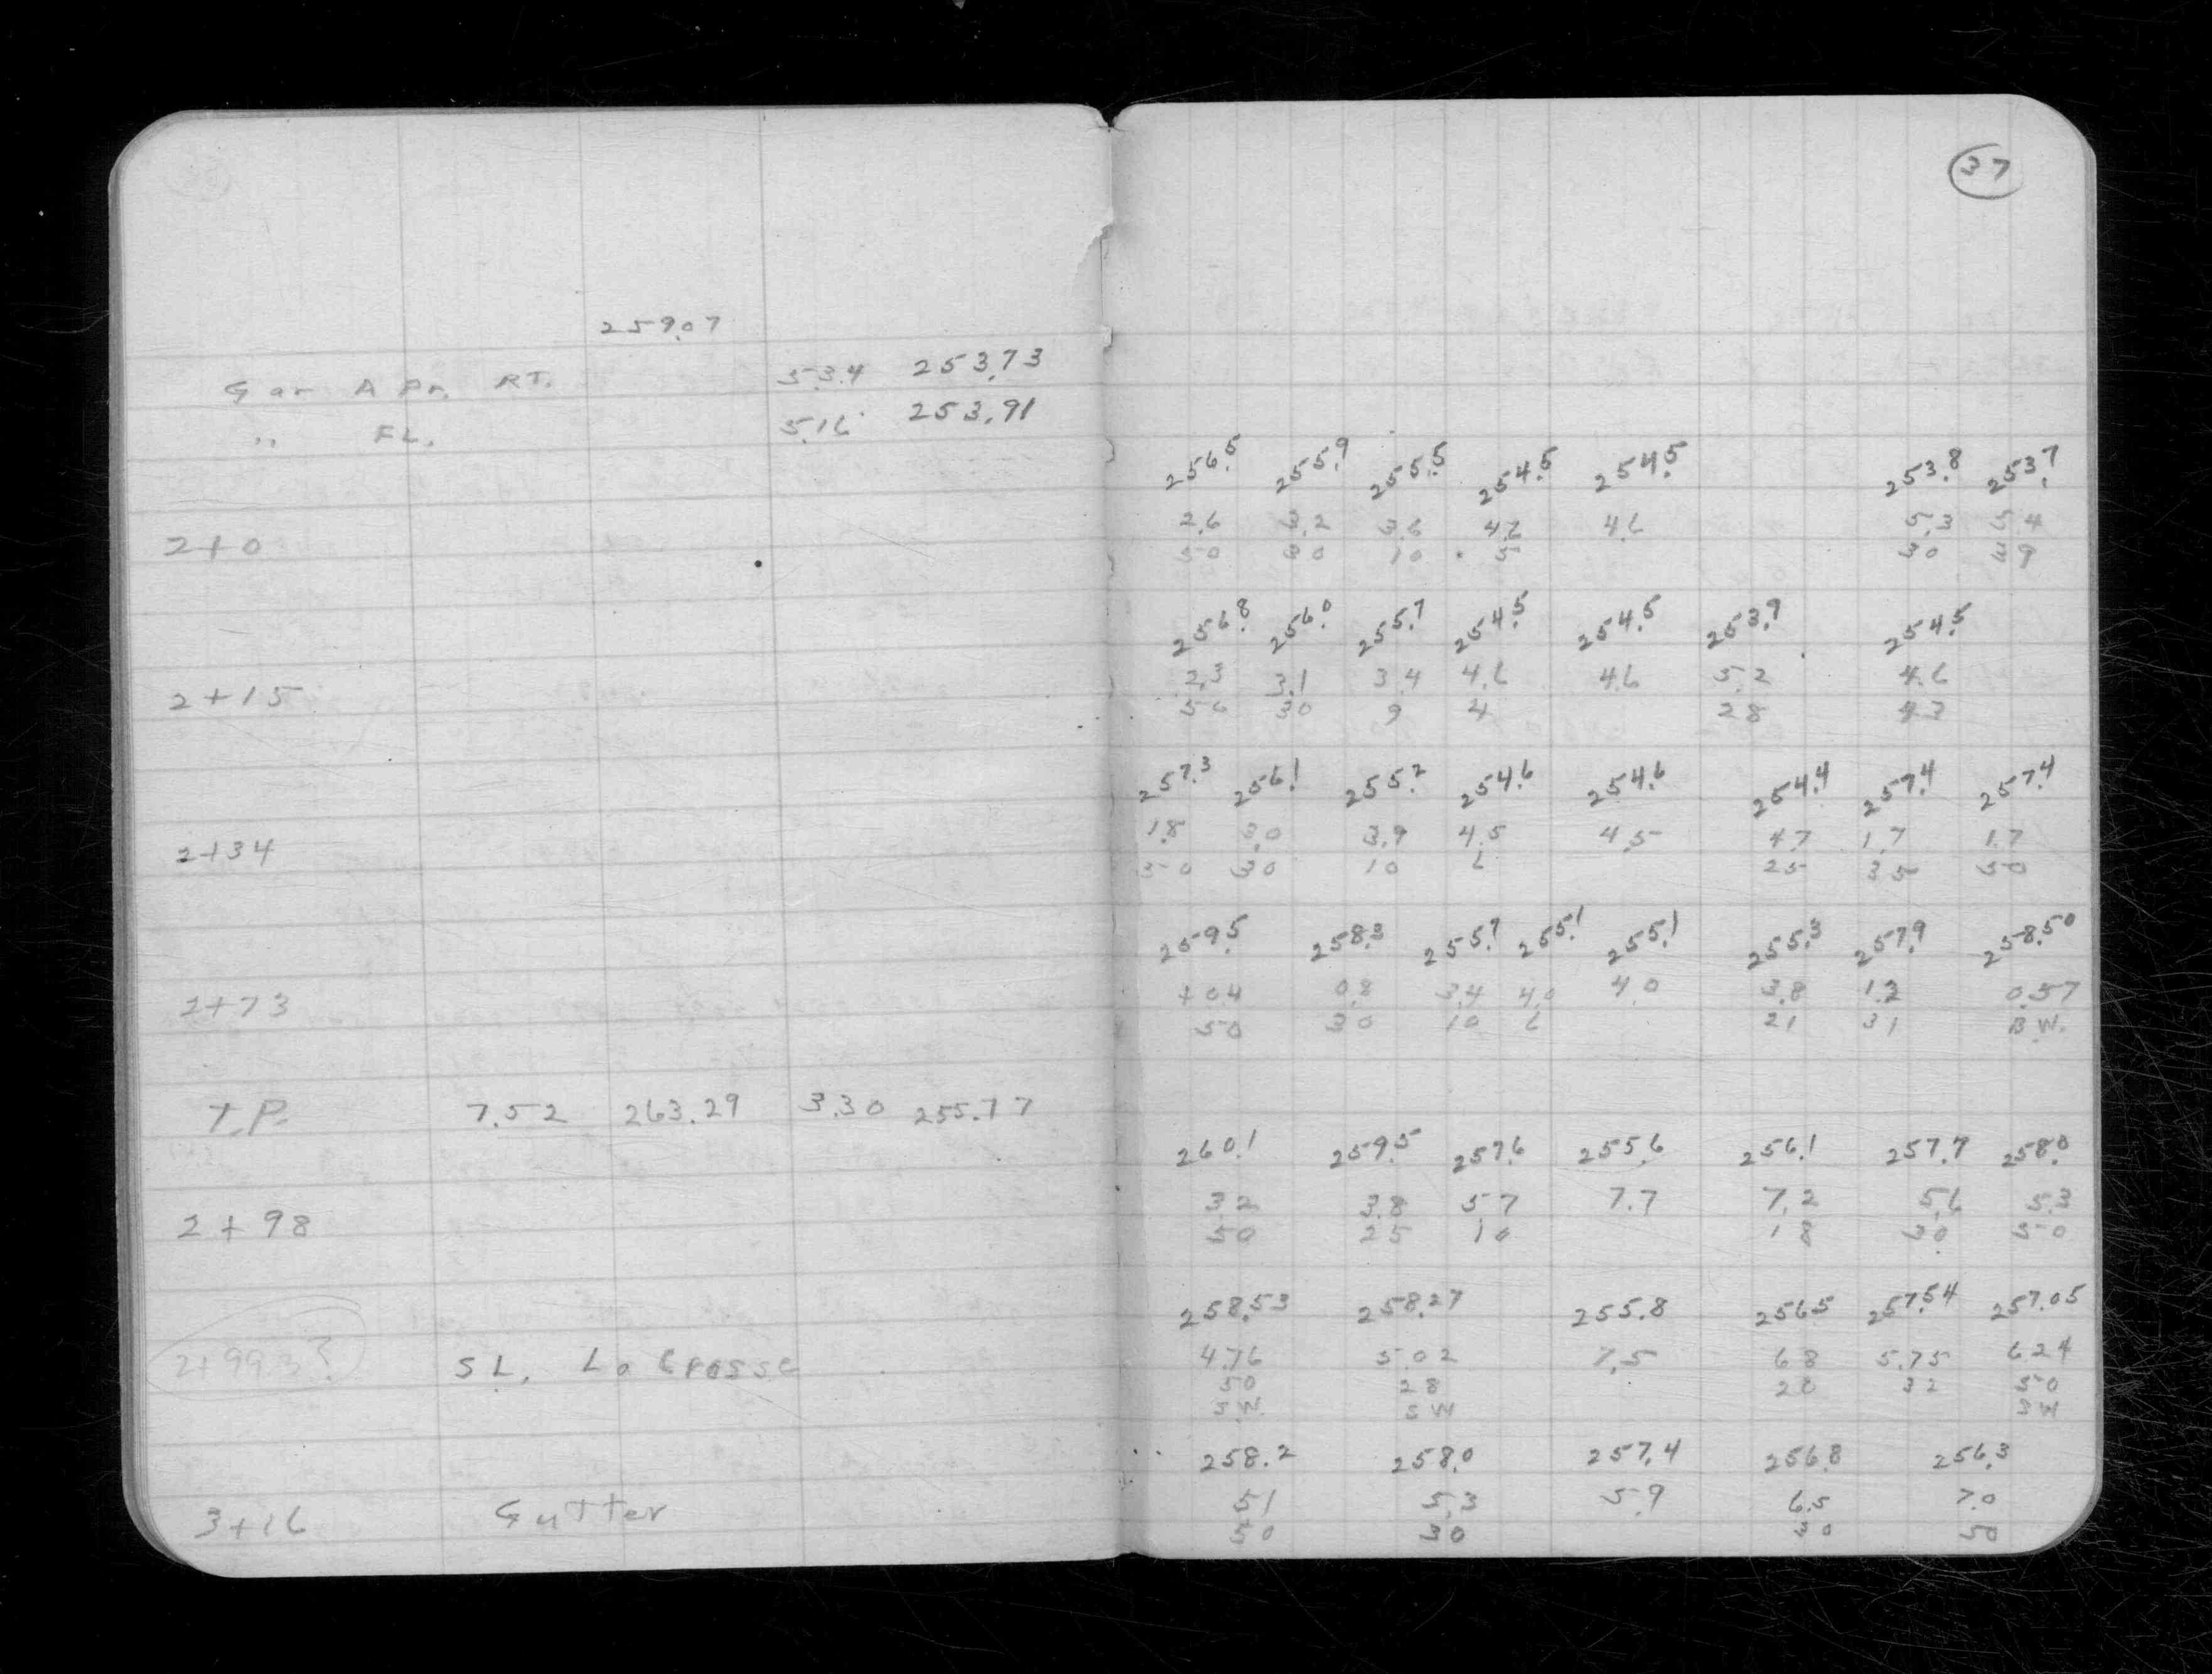 37
259.07
Gar Apr. RT. 5.34 253.73
" FL. 5.16 253.91
256.5 255.9 255.5 254.5 254.5 253.8 253.7
2.6 3.2 3.6 4.6 4.6 5.3 5.4
2+0 50 30 10 5 30 39
256.8 256.0 255.7 254.5 254.5 253.9 254.5
2+15 2.3 3.1 3.4 4.6 4.6 5.2 4.6
50 30 9 4 28 43
257.3 256.1 255.2 254.6 254.6 254.4 257.4 257.4
2+34 1.8 3.0 3.9 4.5 4.5 4.7 1.7 1.7
50 30 10 6 25 35 50
259.5 258.3 255.7 255.1 255.1 255.3 257.9 258.50
2+73 +0.4 0.8 3.4 4.0 4.0 3.8 1.2 0.57
50 30 10 6 21 31 B.W.
T.P. 7.52 263.29 3.30 255.77
260.1 259.5 257.6 255.6 256.1 257.7 258.0
3.2 3.8 5.7 7.7 7.2 5.6 5.3
2+98 50 25 10 18 30 50
258.53 258.27 255.8 256.5 257.54 257.05
2+99.3? S.L. La Crosse 4.76 5.02 7.5 6.8 5.75 6.24
50 28 20 32 50
S.W. S W S W
258.2 258.0 257.4 256.8 256.3
3+16 Gutter 5.1 5.3 5.9 6.5 7.0
50 30 30 50